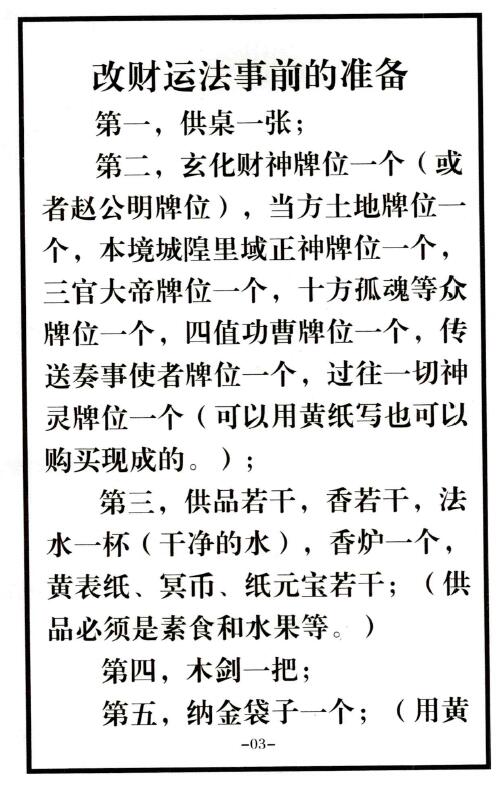 改财运法事前的准备
第一，供桌一张；
第二，玄化财神牌位一个（或
者赵公明牌位），当方土地牌位一
个，本境城隍里域正神牌位一个，
三官大帝牌位一个，十方孤魂等众
牌位一个，四值功曹牌位一个，传
送奏事使者牌位一个，过往一切神
灵牌位一个（可以用黄纸写也可以
购买现成的。）；
第三，供品若干，香若干，法
水一杯（干净的水），香炉一个，
黄表纸、冥币、纸元宝若干；（供
品必须是素食和水果等。）
第四，木剑一把；
第五，纳金袋子一个；（用黄
-03-